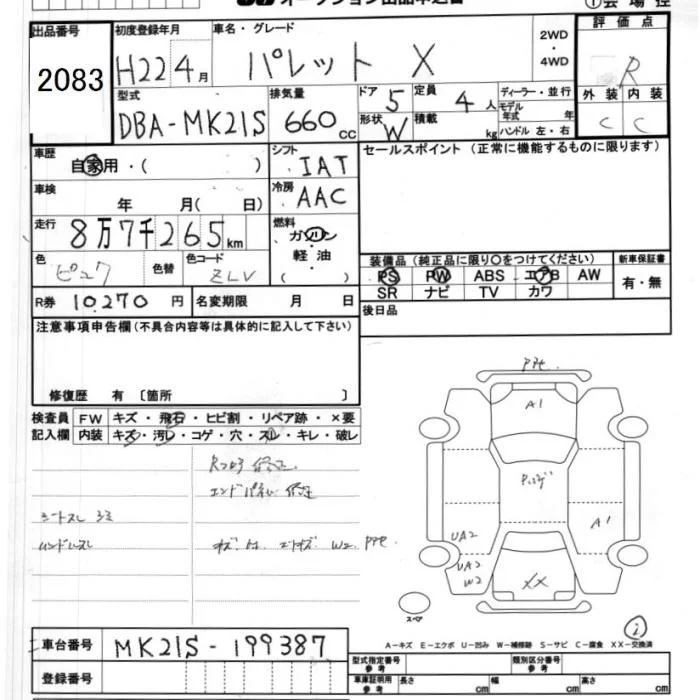 出品番号
2083
初度登録年月
H22 4月
車名・グレード
パレット X
2WD
・
4WD
評価点
R
型式
DBA-MK21S
排気量
660cc
ドア 5
定員 4人
ディーラー・並行
モデル年式 年
形状 W
積載 kg
ハンドル 左・右
外装 内装
C C
車歴
自家用・( )
シフト
IAT
セールスポイント(正常に機能するものに限ります)
車検
年 月( 日)
冷房
AAC
走行
8万7千265km
燃料
ガソリン
・
軽油
( )
色
ピンク
色替
色コード
ZLV
装備品(純正品に限り○をつけてください)
新車保証書
PS PW ABS エアB AW
有・無
SR ナビ TV カワ
R券 10,270円
名変期限 月 日
後日品
注意事項申告欄(不具合内容等は具体的に記入して下さい)
修復歴 有〔箇所 〕
検査員 FW キズ・飛石・ヒビ割・リペア跡・×要
記入欄 内装 キズ・汚レ・コゲ・穴・スレ・キレ・破レ
エンドパネル 修正
W2 PPt
PPt
A1
A1
UA2
UA2
W2
XX
スペア
車台番号 MK21S-199387
登録番号
A-キズ E-エクボ U-凹み W-補修跡 S-サビ C-腐食 XX-交換済
型式指定番号
参考
類別区分番号
参考
車庫証明用
参考
長さ cm
幅 cm
高さ cm